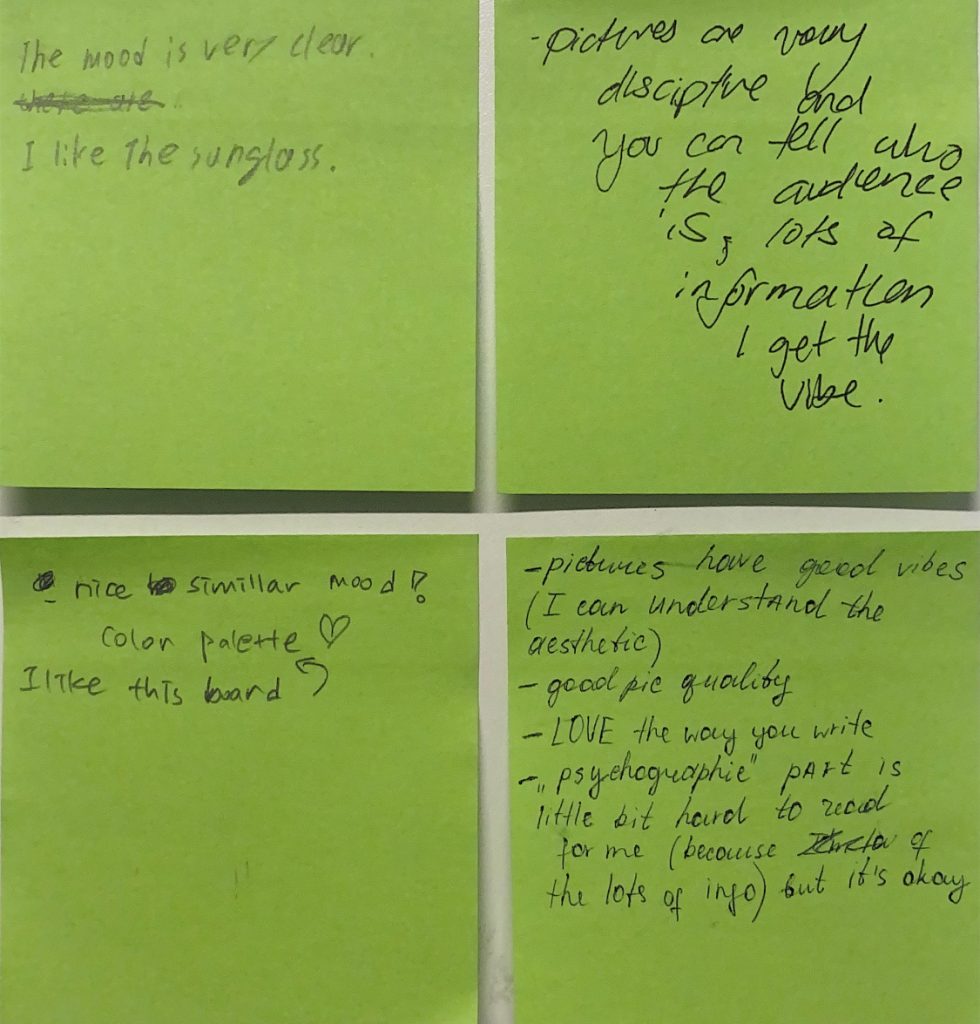 The mood is very clear.
these are
I like The sunglass.
-pictures are very
disciptive and
you can tell who
the audience
is, lots of
information
I get the
vibe.
- nice simillar mood!
color palette ♡
I like this board
-pictures have good vibes
(I can understand the
aesthetic)
- good pic quality
- LOVE the way you write
- „psychographic" part is
little bit hard to read
for me (because of
the lots of info) but it's okay